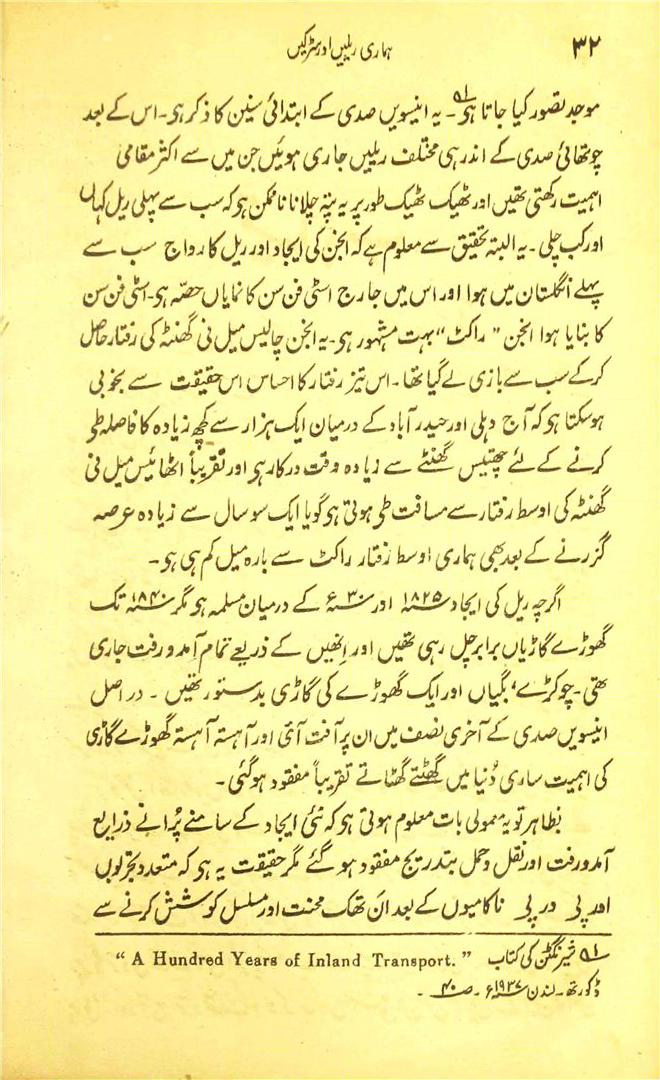 ۳۲
ہماری ریلیں اور سڑکیں
موجد تصور کیا جاتا ہی۱؎۔ یہ انیسویں صدی کے ابتدائی سنین کا ذکر ہی۔ اس کے بعد
چوتھائی صدی کے اندر ہی مختلف ریلیں جاری ہوئیں جن میں سے اکثر مقامی
اہمیت رکھتی تھیں اور ٹھیک ٹھیک طور پر یہ پتہ چلانا ناممکن ہی کہ سب سے پہلی ریل کہاں
اور کب چلی۔ یہ البتہ تحقیق سے معلوم ہے کہ انجن کی ایجاد اور ریل کا رواج سب سے
پہلے انگلستان میں ہوا اور اس میں جارج اسٹی فن سن کا نمایاں حصّہ ہی۔ اسٹی فن سن
کا بنایا ہوا انجن ”راکٹ“ بہت مشہور ہی۔ یہ انجن چالیس میل فی گھنٹہ کی رفتار حاصل
کرکے سب سے بازی لے گیا تھا۔ اس تیز رفتار کا احساس اس حقیقت سے بخوبی
ہوسکتا ہی کہ آج دہلی اور حیدرآباد کے درمیان ایک ہزار سے کچھ زیادہ کا فاصلہ طی
کرنے کے لئے چھتیس گھنٹے سے زیادہ وقت درکار ہی اور تقریباً اٹھائیس میل فی
گھنٹہ کی اوسط رفتار سے مسافت طی ہوتی ہی گویا ایک سو سال سے زیادہ عرصہ
گزرنے کے بعد بھی ہماری اوسط رفتار راکٹ سے بارہ میل کم ہی ہی۔
اگرچہ ریل کی ایجاد ۱۸۲۵؁ اور ۳۰؁ء کے درمیان مسلمہ ہی مگر ۱۸۴۰؁ تک
گھوڑے گاڑیاں برابر چل رہی تھیں اور اِنھیں کے ذریعے تمام آمد و رفت جاری
تھی۔ چوکڑے، بگیاں اور ایک گھوڑے کی گاڑی بدستور تھیں۔ در اصل
انیسویں صدی کے آخری نصف میں ان پر آفت آئی اور آہستہ آہستہ گھوڑے گاڑی
کی اہمیت ساری دُنیا میں گھٹتے گھٹاتے تقریباً مفقود ہوگئی۔
بظاہر تو یہ معمولی بات معلوم ہوتی ہی کہ نئی ایجاد کے سامنے پُرانے ذرایع
آمد و رفت اور نقل و حمل بتدریج مفقود ہو گئے مگر حقیقت یہ ہی کہ متعدد تجربوں
اور پی در پی ناکامیوں کے بعد ان تھک محنت اور مسلسل کوشش کرنے سے
۱؎ شیرنگٹن کی کتاب “A Hundred Years of Inland Transport.”
ڈکورتھ۔ لندن ۱۹۳۷؁ء۔ ص ۴۰۔